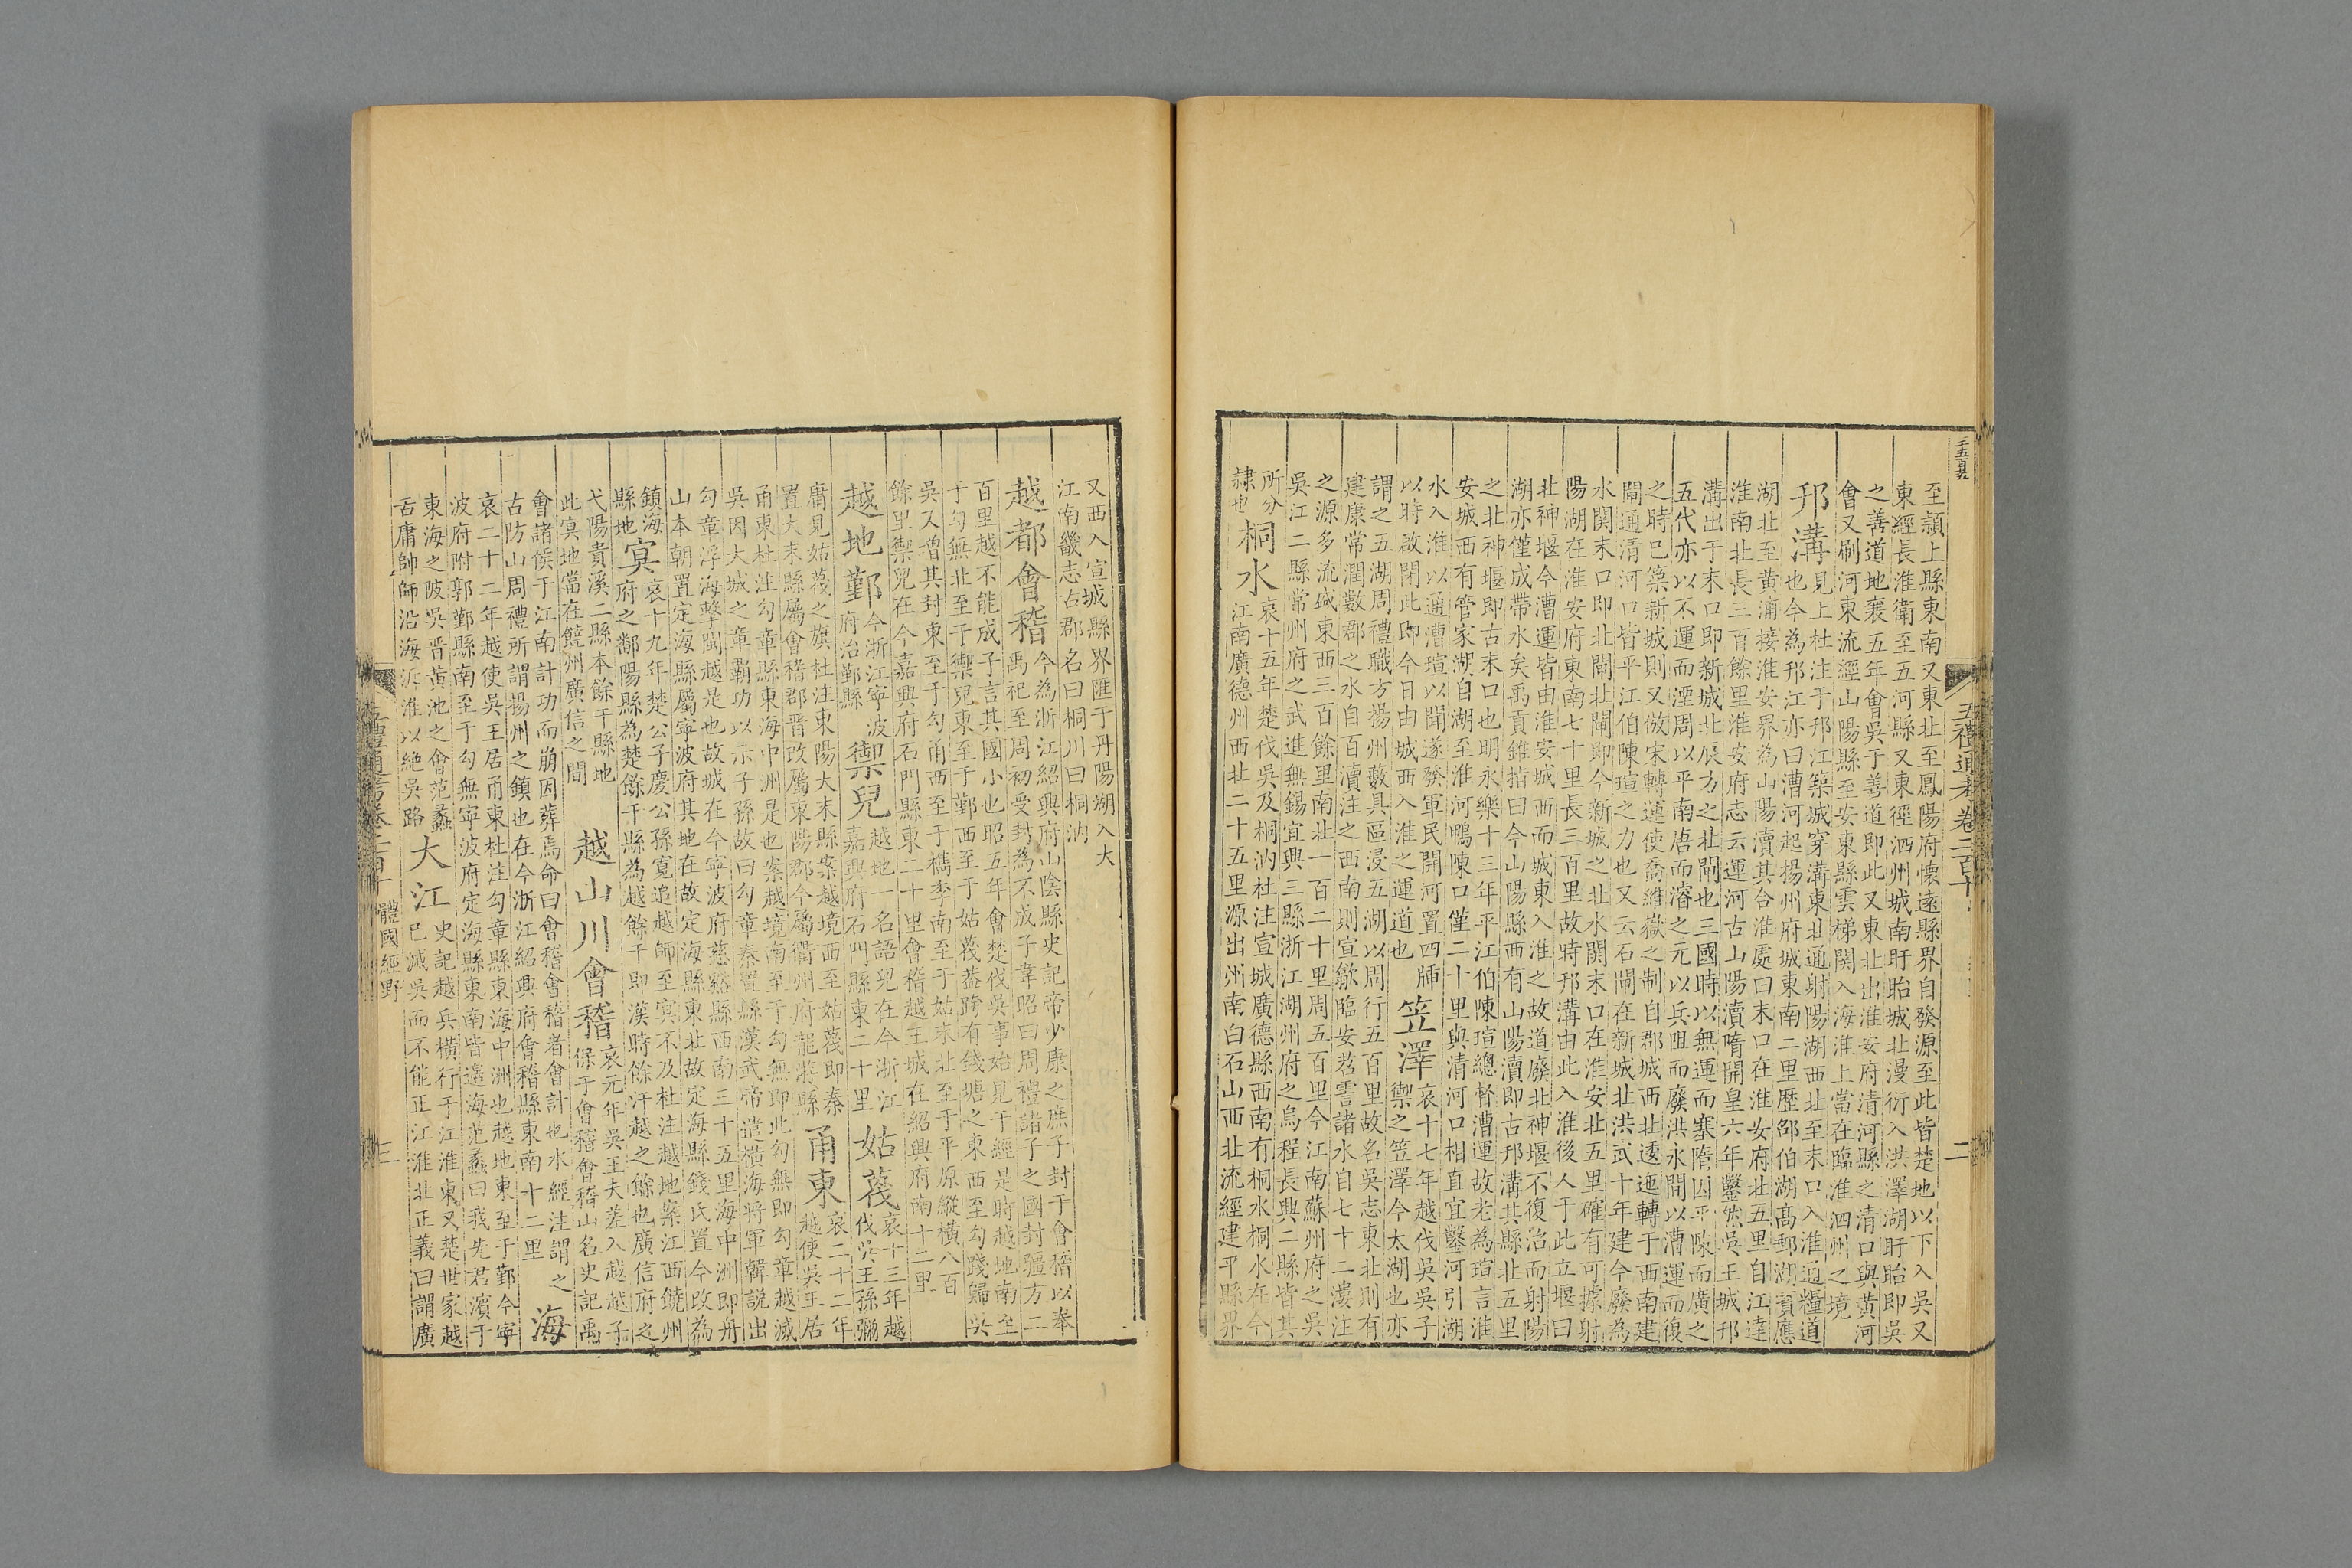 至潁上縣東南又東北至鳳陽府懷遠縣界自發源至此皆楚地以下入吳又
東經長淮衛至五河縣又東徑泗州城南盱眙城北漫衍入洪澤湖盱眙即吳
之善道地襄五年會吳于善道即此又東北出淮安府清河縣之清口與黃河
會又刷河東流經山陽縣至安東縣雲梯關入海淮上當在臨淮泗州之境
邗溝
見上杜注于邗江築城穿溝東北通射陽湖西北至末口入淮通糧道
也今為邗江亦曰漕河起揚州府城東南二里歷邵伯湖高郵湖寶應
湖北至黃浦接淮安界為山陽瀆其合淮處曰末口在淮安府北五里自江達
淮南北長三百餘里淮安府志云運河古山陽瀆隋開皇六年鑿然吳王城邗
溝出于末口即新城北辰方之北閘也三國時以無運而塞隋因平陳而廣之
五代亦以不運而湮周以平南唐而濬之元以兵阻而廢洪水間以漕運而復
之時已築新城則又倣宋轉運使喬維嶽之制自郡城西北逶迤轉于西南建
閘通清河口皆平江伯陳瑄之力也又云石閘在新城北洪武十年建今廢為
水關末口即北閘北閘即今新城之北水關末口在淮安北五里確有可據射
陽湖在淮安府東南七十里長三百里故時邗溝由此入淮後人于此立堰曰
北神堰今漕運皆由淮安城西而城東入淮之故道廢北神堰不復治而射陽
湖亦僅成帶水矣禹貢錐指曰今山陽縣西有山陽瀆即古邗溝其縣北五里
之北神堰即古末口也明永樂十三年平江伯陳瑄總督漕運故老為瑄言淮
安城西有管家湖自湖至淮河鴨陳口僅二十里與清河口相直宜鑿河引湖
水入淮以通漕瑄以聞遂發軍民開河置四牐
以時啟閉此即今日由城西入淮之運道也
笠澤
哀十七年越伐吳吳子
禦之笠澤今太湖也亦
謂之五湖周禮職方揚州藪具區浸五湖以周行五百里故名吳志東北則有
建康常潤數郡之水自百瀆注之西南則宣歙臨安苕霅諸水自七十二漊注
之源多流盛東西三百餘里南北一百二十里周五百里今江南蘇州府之吳
吳江二縣常州府之武進無錫宜興三縣浙江湖州府之烏程長興二縣皆其
所分
隷也
桐水
哀十五年楚伐吳及桐汭杜注宣城廣德縣西南有桐水桐水在今
江南廣德州西北二十五里源出州南白石山西北流經建平縣界
又西入宣城縣界匯于丹陽湖入大
江南畿志古郡名曰桐川曰桐汭
越都會稽
今為浙江紹興府山陰縣史記帝少康之庶子封于會稽以奉
禹祀至周初受封為不成子韋昭曰周禮諸子之國封疆方二
百里越不能成子言其國小也昭五年會楚伐吳事始見于經是時越地南至
于勾無北至于禦兒東至于鄞西至于姑蔑葢跨有錢塘之東西至勾踐歸吳
吳又增其封東至于勾甬西至于檇李南至于姑末北至于平原縱横八百
餘里禦兒在今嘉興府石門縣東二十里會稽越王城在紹興府南十二里
越地鄞
今浙江寧波
府治鄞縣
禦兒
越地一名語兒在今浙江
嘉興府石門縣東二十里
姑蔑
哀十三年越
伐吳王孫彌
庸見姑蔑之旗杜注東陽大末縣案越境西至姑蔑即秦
置大末縣屬會稽郡晉改屬東陽郡今屬衢州府龍游縣
甬東
哀二十二年
越使吳王居
甬東杜注勾章縣東海中洲是也案越境南至于勾無即此勾無即勾章越滅
吳因大城之章霸功以示子孫故曰勾章秦置縣漢武帝遣橫海將軍韓說出
勾章浮海擊閩越是也故城在今寧波府慈谿縣西南三十五里海中洲即舟
山本朝置定海縣屬寧波府其地在故定海縣東北故定海縣錢氏置今改為
鎮海
縣地
冥
哀十九年楚公子慶公孫寬追越師至冥不及杜注越地案江西饒州
府之鄱陽縣為楚餘干縣為越餘干即漢時餘汗越之餘也廣信府之
弋陽貴溪二縣本餘干縣地
此冥地當在饒州廣信之間
越山川會稽
哀元年吳王夫差入越越子
保于會稽會稽山名史記禹
會諸侯于江南計功而崩因葬焉命曰會稽會稽者會計也水經注謂之
古防山周禮所謂揚州之鎮也在今浙江紹興府會稽縣東南十二里
海
哀二十二年越使吳王居甬東杜注勾章縣東海中洲也越地東至于鄞今寧
波府附郭鄞縣南至于勾無寧波府定海縣東南皆邊海范蠡曰我先君濱于
東海之陂吳晉黃池之會范蠡
舌庸帥師沿海泝淮以絕吳路
大江
史記越兵橫行于江淮東又楚世家越
已滅吳而不能正江淮北正義曰謂廣
五禮通考卷二百十
二
體國經野
三